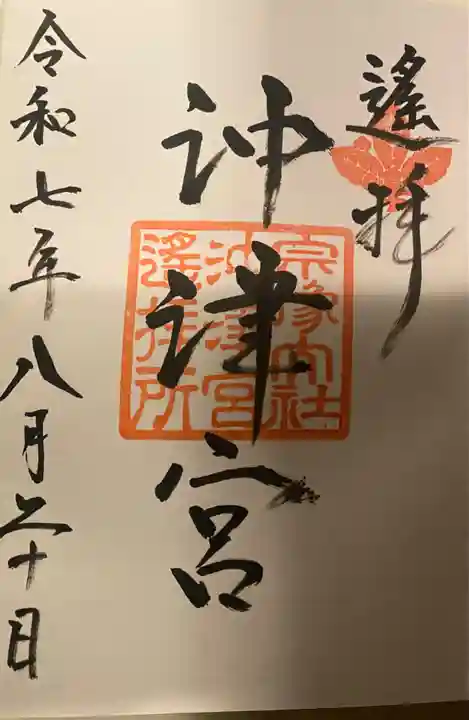 遙拝
沖津宮
宗像大社
沖津宮
遙拝所
令和七年八月二十日